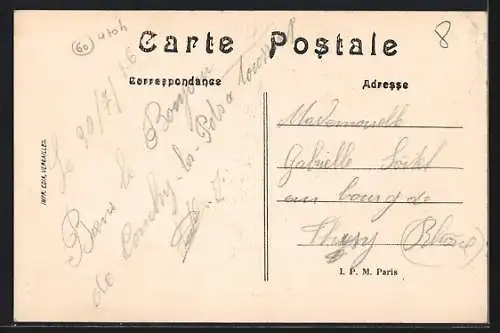 60
8
Carte Postale
Correspondance
Adresse
Le 20/7/16
Bons le Bonjour
de Conchy-les-Pots
Mademoiselle
Gabrielle
au bourg de
(Rhône)
IMP. EDIA, VERSAILLES.
I. P. M. Paris